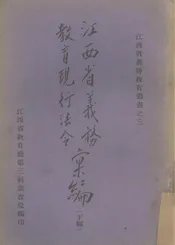 江西省義務教育叢書之三
江西省義務
教育現行法令
彙編
(下輯)
江西省教育廳第三科義教股編印